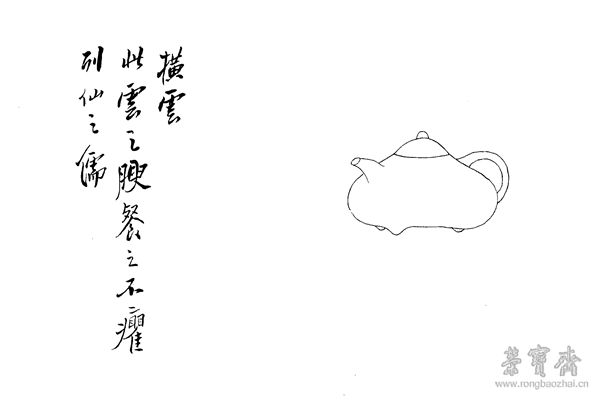 橫雲
此雲之腴餐之不癯
列仙之儒
榮寶齋
www.rongbaozhai.cn